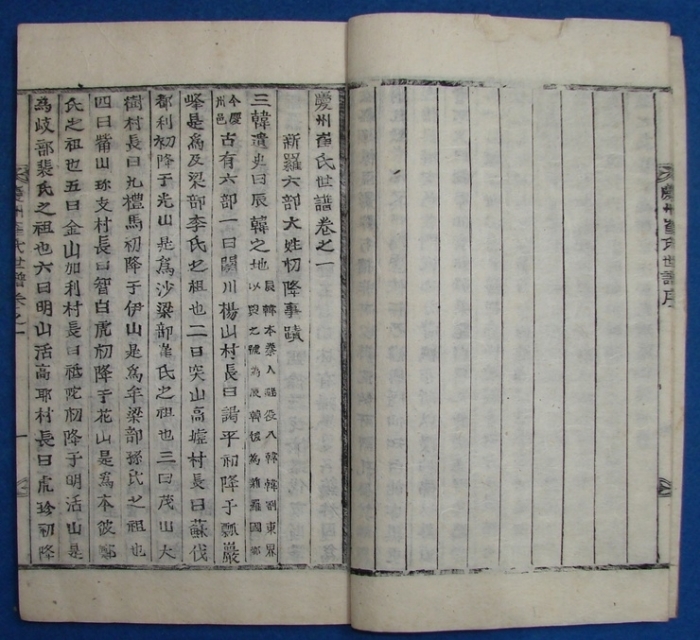 慶州崔氏世譜序
慶州崔氏世譜卷之一
新羅六部大姓初降事蹟
三韓遺史曰辰韓之地辰韓本秦人避役入韓韓割東界
以與之號為辰韓後為新羅國都
今慶
州邑古有六部一曰閼川楊山村長曰謁平初降于瓢巖
峰是為及梁部李氏之祖也二曰突山高墟村長曰蘇伐
都利初降于光山是為沙梁部崔氏之祖也三曰茂山大
樹村長曰禮馬初降于伊山是為牟梁部孫氏之祖也
四曰觜山珍支村長曰智白虎初降于花山是為本彼鄭
氏之祖也五曰金山加利村長曰祗陀初降于明活山是
為岐部裴氏之祖也六曰明山活高耶村長曰虎珍初降
慶州崔氏世譜卷之一
一